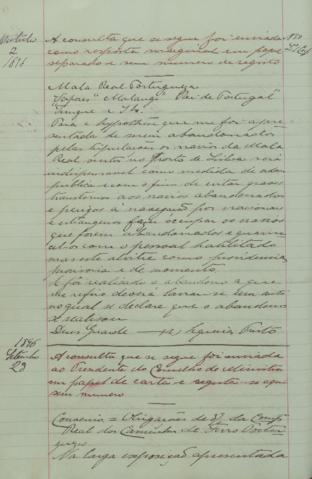 A consulta que se segue foi enviada
como resposta marginal em papel
separado e sem numero de registo
2
1896
Mala Real Portugueza
Vapores "Malange" "Rei de Portugal"
Para a hypothese que me foi apre-
sentada de serem abandonados
pelas tripulações os navios da Mala
Real surtos no Porto de Lisboa será
indispensavel como medida de ordem
publica e com o fim de evitar graves
transtornos aos navios abandonados
e perigos á navegação por nacionaes
e estrangeiros fazer occupar os navios
que forem abandonados e guarne-
cel-os com o pessoal habilitado
mas este alvitre como providencia
provisoria e de momento.
E for realisado o abandono a que
me refiro deverá lavrar-se um auto
no qual se declare que o abandono
Deus Guarde
1896
Setembro
23
A consulta que se segue foi enviada
ao Presidente do Conselho de Ministros
em papel de carta e registo-se aqui
sem numero
Real dos Caminhos de Ferro Portu-
guezes
Na larga exposição apresentada